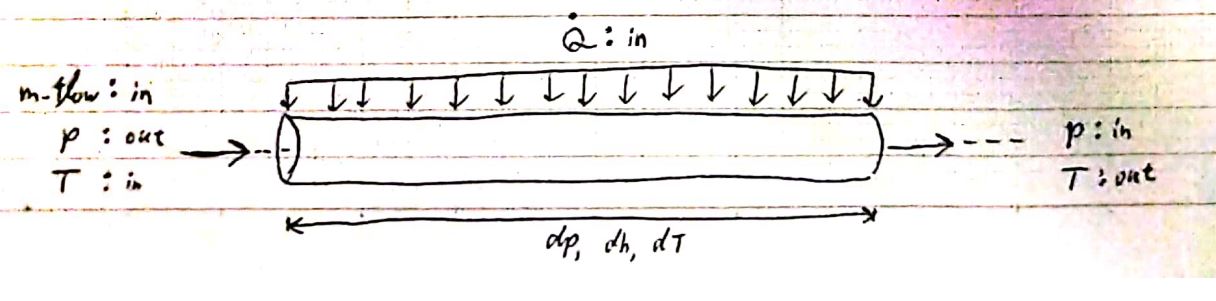 Q̇ : in
m-flow : in
p : out
T : in
p : in
T : out
dp, dh, dT